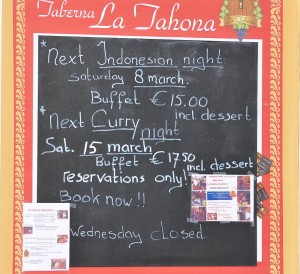 Taberna La Tahona
* Next Indonesian night
Saturday 8 march.
Buffet €15.00
incl. dessert
* Next Curry night
Sat. 15 march
Buffet €17.50
incl. dessert
reservations only!
Book now!!
Wednesday closed